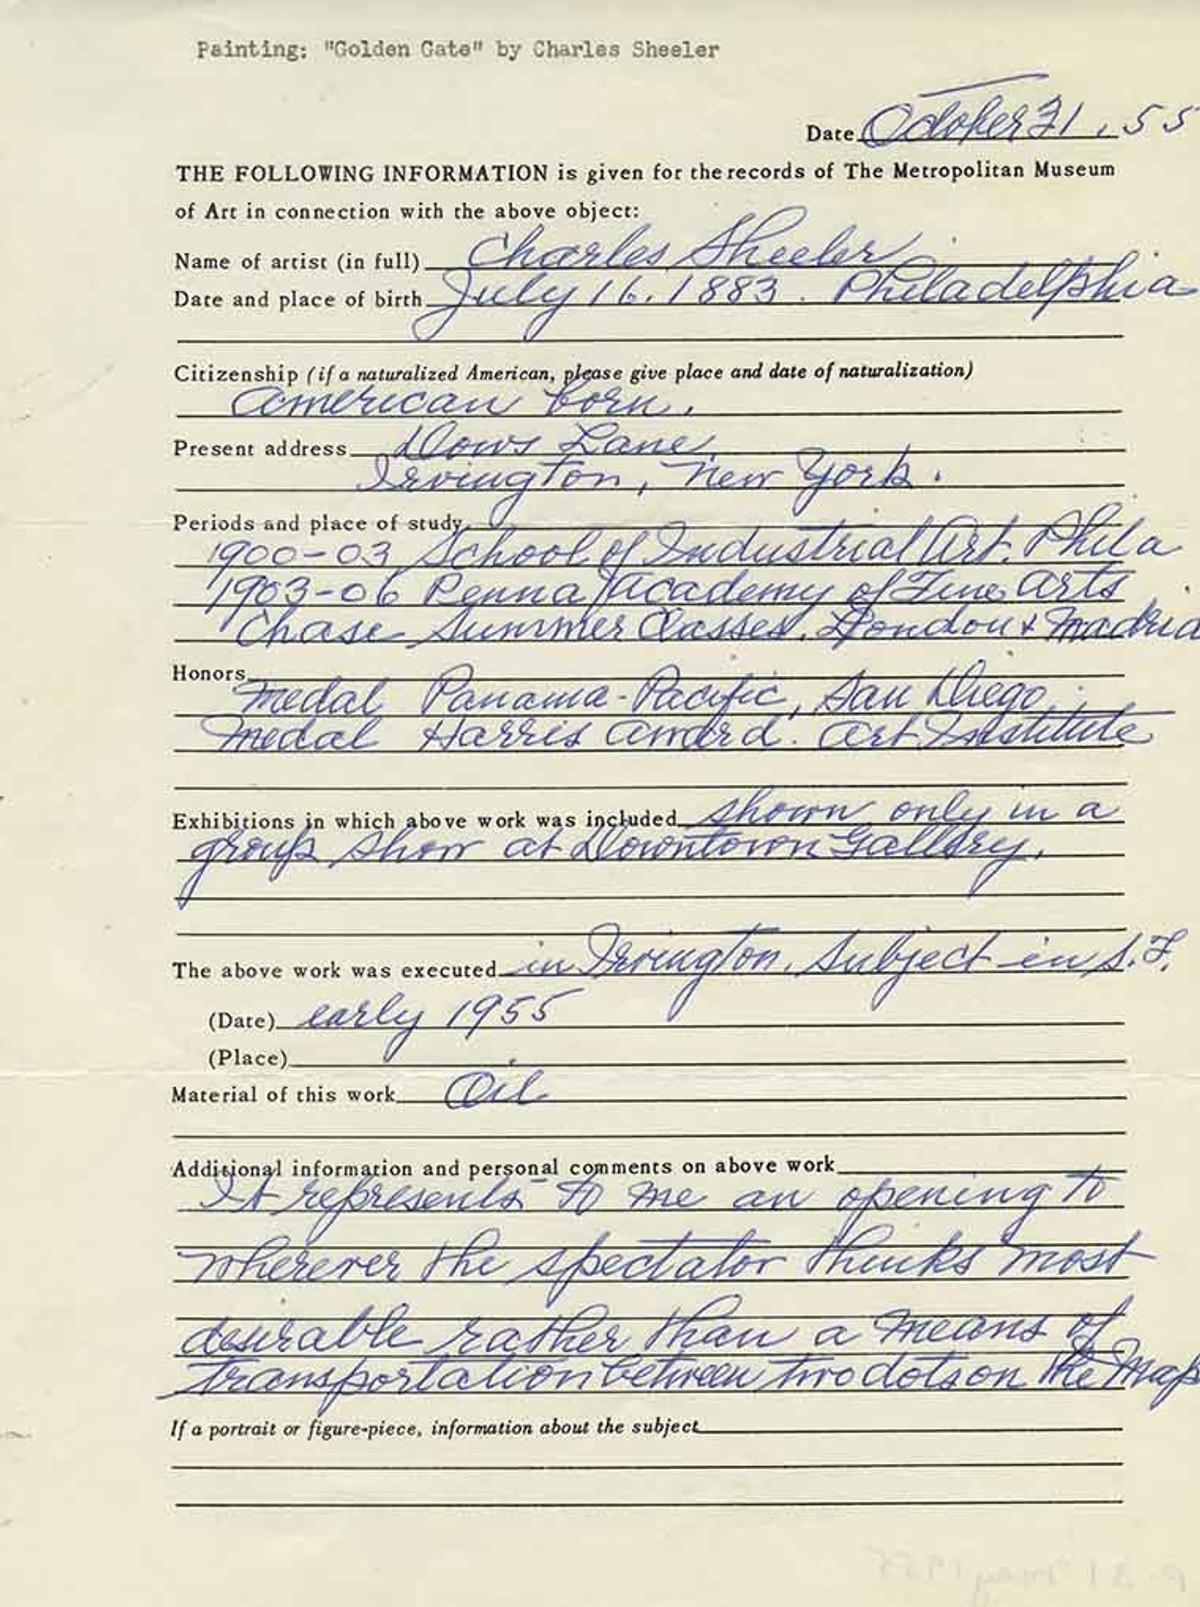 Painting: "Golden Gate" by Charles Sheeler
Date October 31, 55
THE FOLLOWING INFORMATION is given for the records of The Metropolitan Museum
of Art in connection with the above object:
Name of artist (in full) Charles Sheeler
Date and place of birth July 16. 1883. Philadelphia
Citizenship (if a naturalized American, please give place and date of naturalization)
American born.
Present address Dows Lane
Irvington, New York.
Periods and place of study
1900-03 School of Industrial Art. Phila
1903-06 Penna Academy of Fine Arts
Chase Summer Classes. London & Madrid
Honors
Medal Panama-Pacific, San Diego.
Medal Harris Award. Art Institute
Exhibitions in which above work was included shown only in a
group show at Downtown Gallery.
The above work was executed in Irvington. Subject in S.F.
(Date) early 1955
(Place)
Material of this work Oil
Additional information and personal comments on above work
It represents to me an opening to
wherever the spectator thinks most
desirable rather than a means of
transportation between two dots on the map
If a portrait or figure-piece, information about the subject